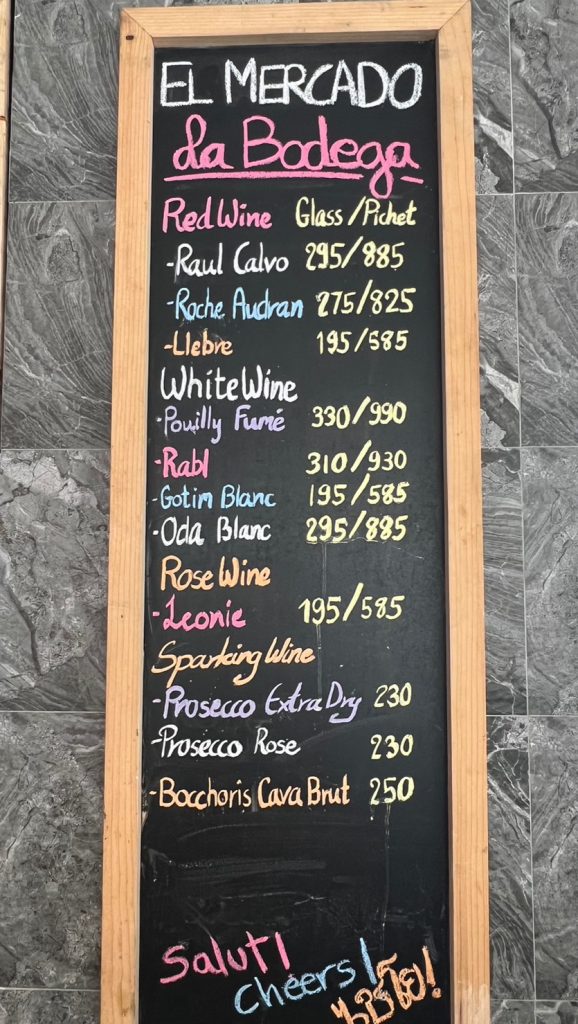 EL MERCADO
La Bodega
Red Wine Glass/Pichet
-Raul Calvo 295/885
-Roche Audran 275/825
-Llebre 195/585
White Wine
-Pouilly Fumé 330/990
-Rabl 310/930
-Gotim Blanc 195/585
-Oda Blanc 295/885
Rose Wine
-Leonie 195/585
Sparking Wine
-Prosecco Extra Dry 230
-Prosecco Rose 230
-Bocchoris Cava Brut 250
Salut!
cheers!
ไชโย!